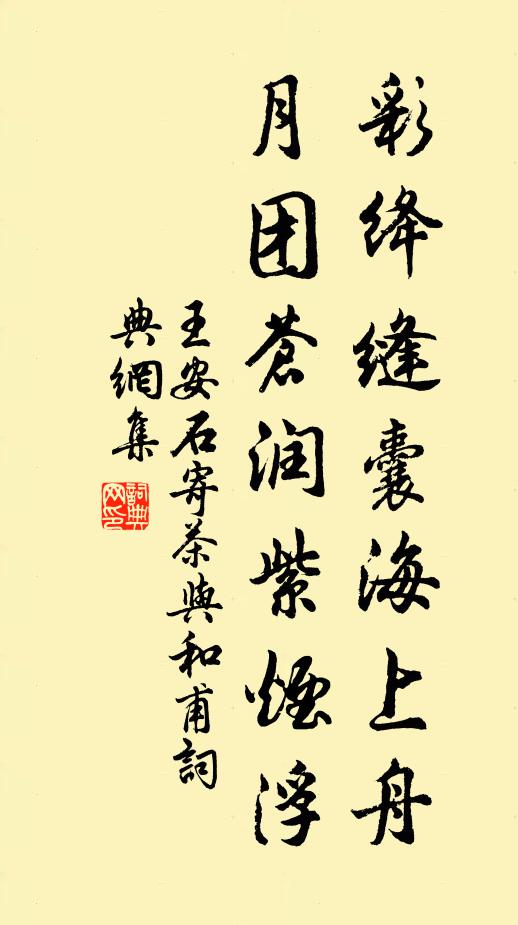 彩绛缝囊海上舟
月团苍润紫烟浮
王安石寄茶與和甫詞
典網集
詞典网印